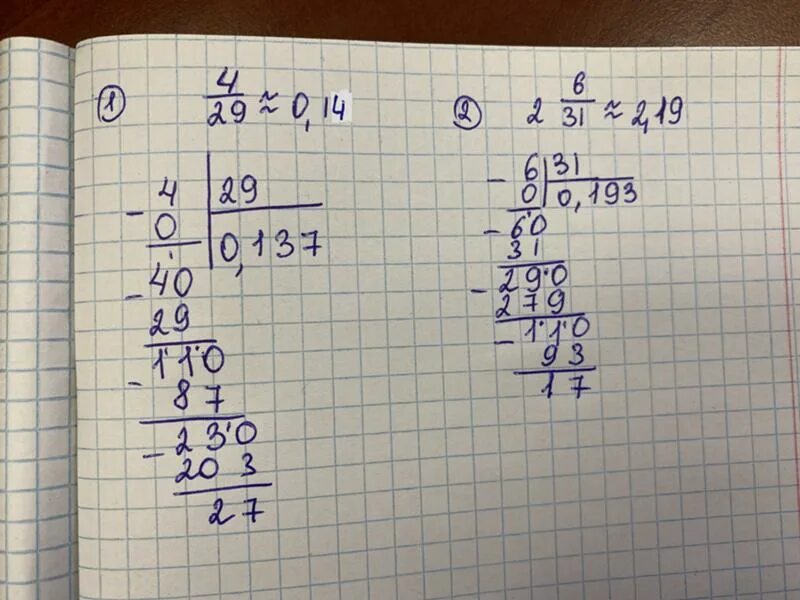 ① 4/29 ≈ 0,14
- 4 | 29
0 | 0,137
- 40
29
- 110
87
- 230
203
27
② 2 6/31 ≈ 2,19
- 6 | 31
0 | 0,193
- 60
31
- 290
279
- 110
93
17